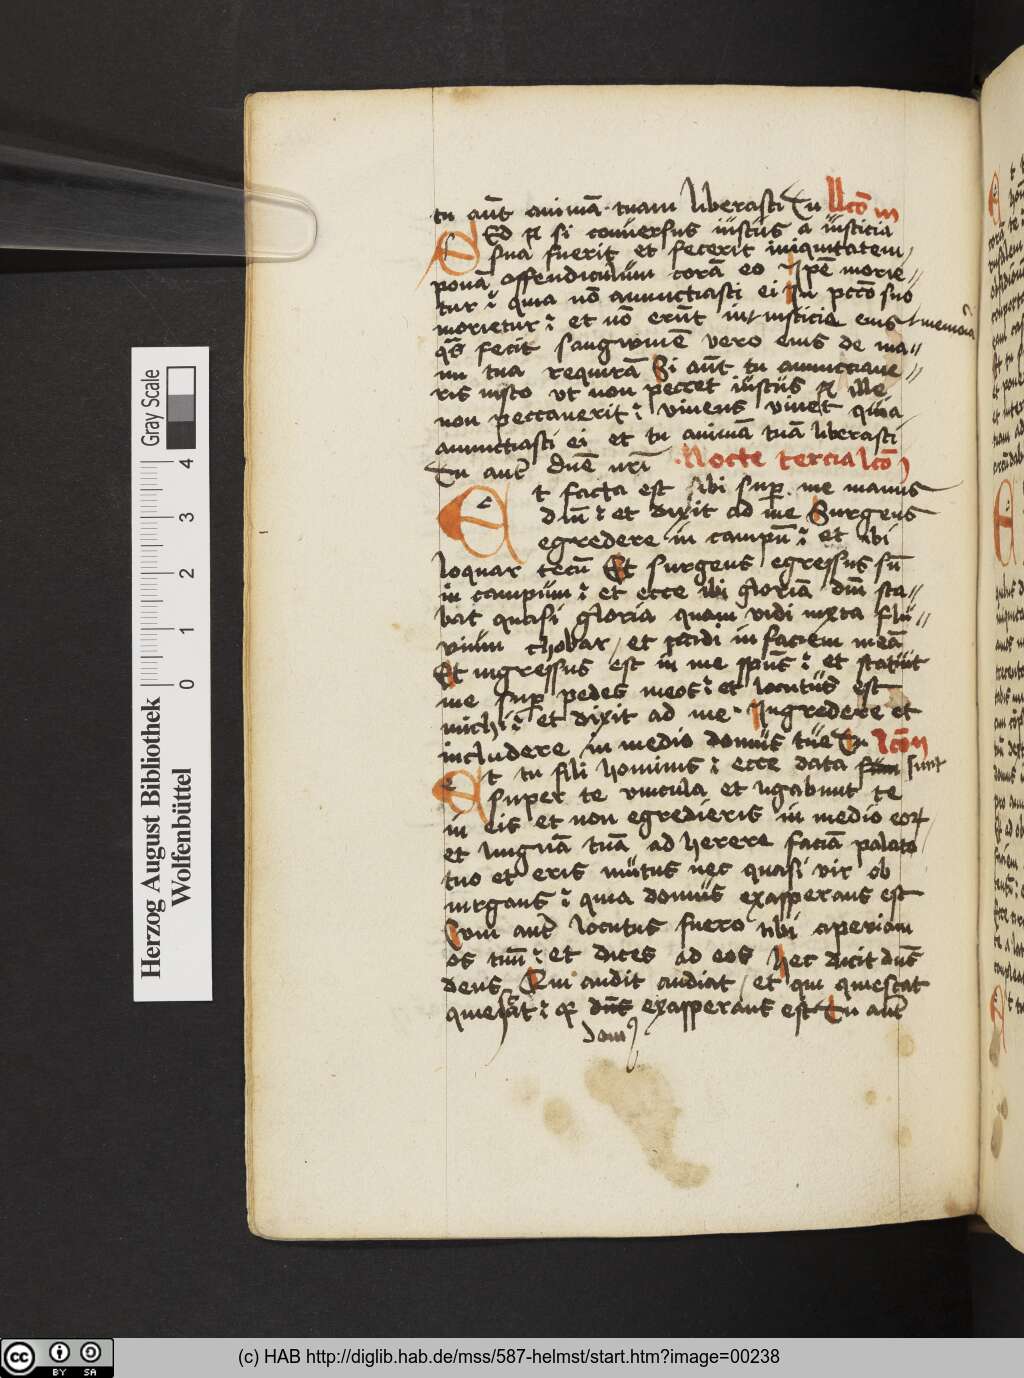 tu aūt animā tuam liberasti Tu llcō iii
Sed et si conversus iustus a iusticia
sua fuerit et fecerit iniquitatem
ponā offendiculum corā eo Ipē morie//
tur quia nō anunctiasti ei In pccō suo
morietur et nō erūt in iusticie eius memoria
q̄s fecit sangwinē vero eius de ma//
nu tua requirā Si aūt tu anunctiave//
ris iusto ut non peccet iustus et ille
non peccaverit vivens vivet quia
anunctiasti ei et tu animā tuā liberasti
Tu autē dnē nr̄i Nocte tercia lcō i
Et facta est sibi sup me manus
dnī et dixit ad me Surgens
egredere in campū et ibi
loquar tecū Et surgens egressus sū
in campum et ecce ibi gloriā dnī sta//
bat quasi gloria quam vidi iuxta flu//
vium chobar et cecidi in faciem meā
Et ingressus est in me sp̄us et statuit
me sup pedes meos et locutus est
michi et dixit ad me Ingredere et
includere in medio domus tue Tu lcō ii
Et tu fili hominis ecce data sunt
super te vincula et ligabunt te
in eis et non egredieris in medio eor
et linguā tuā adherere faciā palato
tuo et eris mutus nec quasi vir ob
iurgans quia domus exasperans est
Cum autē locutus fuero tibi aperiam
os tuū et dices ad eos hec dicit dn̄s
deus Qui audit audiat et qui quiescat
quiescat q dūs exasperans est Tu autē
dom
Herzog August Bibliothek
Wolfenbüttel
Gray Scale
0 1 2 3 4
cc BY SA
(c) HAB http://diglib.hab.de/mss/587-helmst/start.htm?image=00238